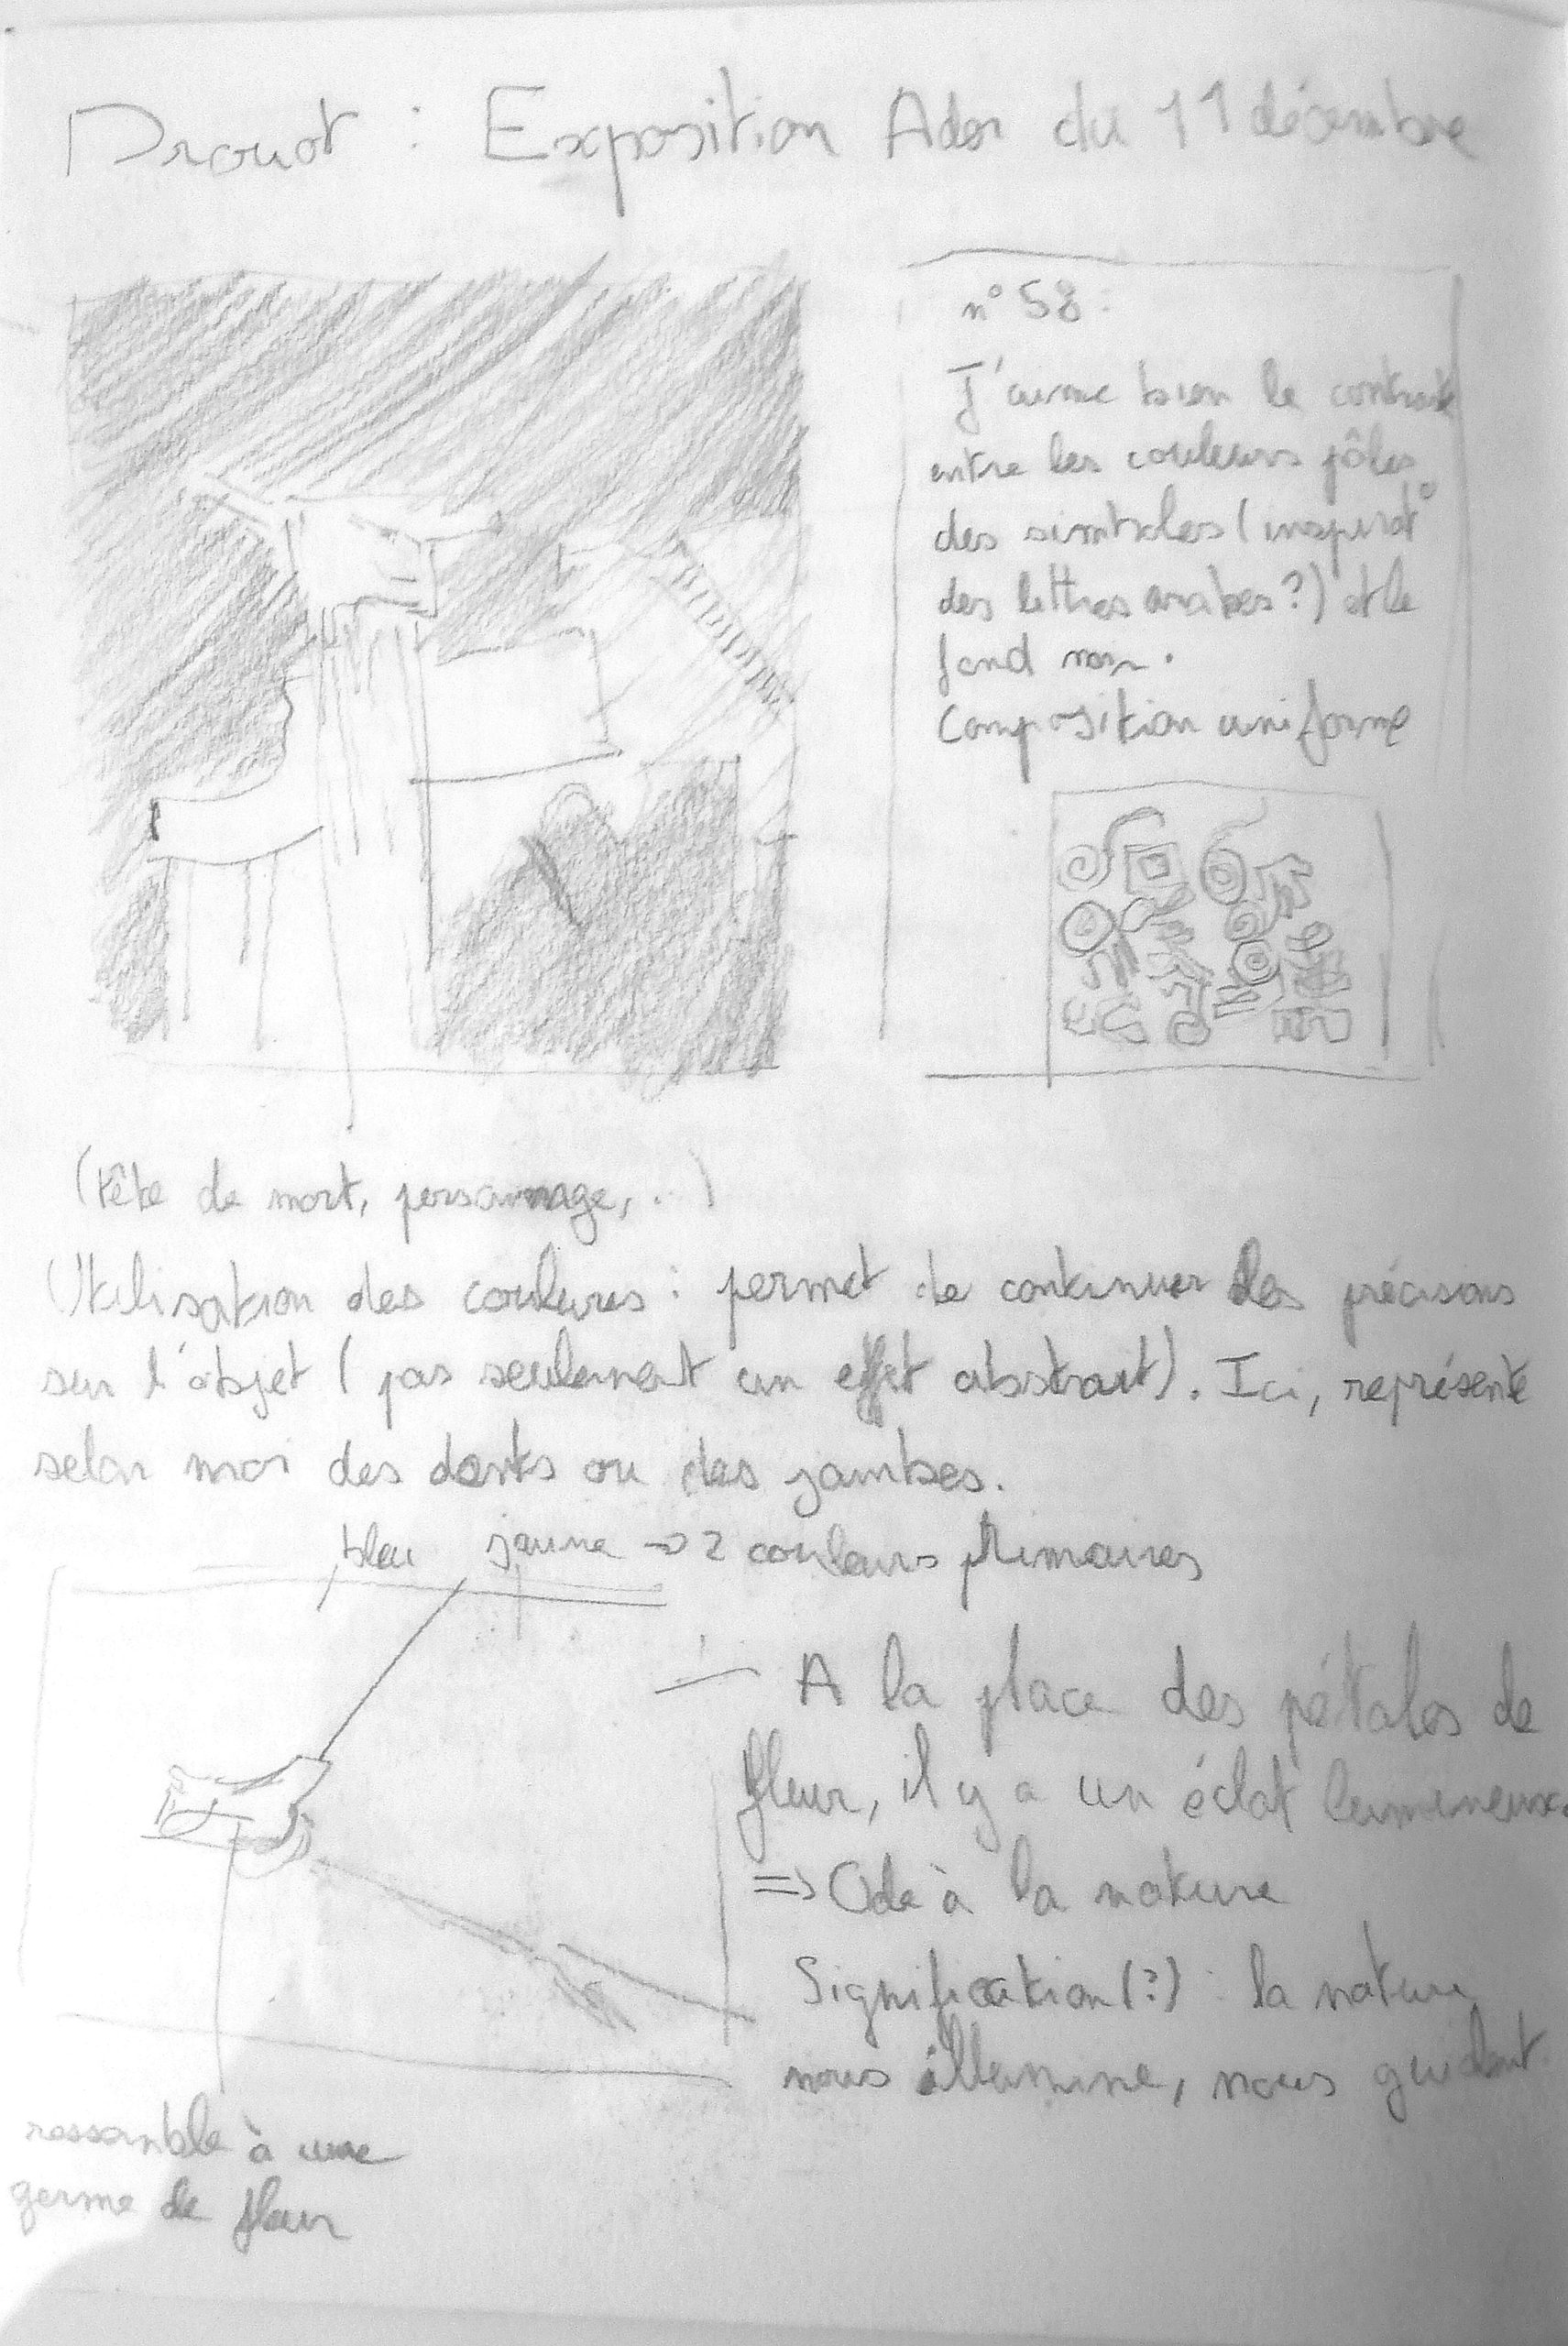 Drouot : Exposition Ader du 11 décembre
n° 58 :
J'aime bien le contraste
entre les couleurs pâles
des simboles (inspirat°
des lettres arabes?) et le
fond noir.
Composition uniforme
(tête de mort, personnage, ..)
Utilisation des coulures : permet de continuer des précisions
sur l'objet (pas seulement un effet abstrait). Ici, représente
selon moi des dents ou des jambes.
bleu jaune → 2 couleurs primaires
A la place des pétales de
fleur, il y a un éclat lumineux.
=> Ode à la nature
Signification(?) : la nature
nous illumine, nous guident.
ressemble à une
germe de fleur